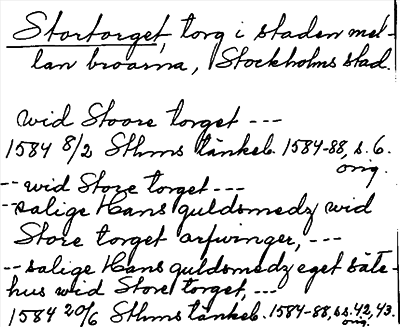 Stortorget, torg i staden mel-
lan broarna, Stockholms stad.
wid Stoore torget ---
1584 8/2 Sthms tänkeb. 1584-88, s. 6.
orig.
-- wid Store torget ---
-- salige Hans guldsmedz wid
Store torget arfwinger, ---
-- salige Hans guldsmedz eget säte-
hus wid Store torget, ---
1584 20/6 Sthms tänkeb. 1584-88, ss. 42, 43.
orig.